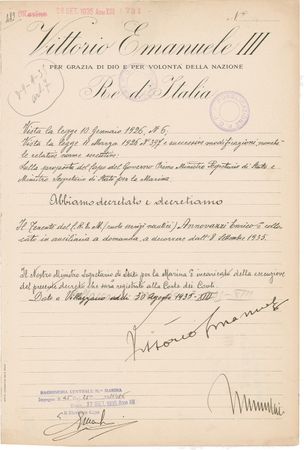 Marina
28 SET. 1935 Anno XIII
Vittorio Emanuele III
PER GRAZIA DI DIO E PER VOLONTÀ DELLA NAZIONE
Re d'Italia
Vista la legge 10 Gennaio 1926, N. 6,
Vista la legge 11 Marzo 1926 N. 397 e successive modificazioni, nonchè
le relative norme esecutive;
Sulla proposta del Capo del Governo Primo Ministro Segretario di Stato e
Ministro Segretario di Stato per la Marina
Abbiamo decretato e decretiamo
Il Tenente del C.R.E.M. Annovanzi Enrico è collo-
cato in ausiliaria a domanda, a decorrere dall' 8 Settembre 1935.
Il Nostro Ministro Segretario di Stato per la Marina è incaricato della esecuzione
del presente decreto che sarà registrato alla Corte dei Conti.
Dato a addì 30 Agosto 1935-XIII
Vittorio Emanuele
Mussolini
RAGIONERIA CENTRALE MARINA
SET. 1935 Anno XIII